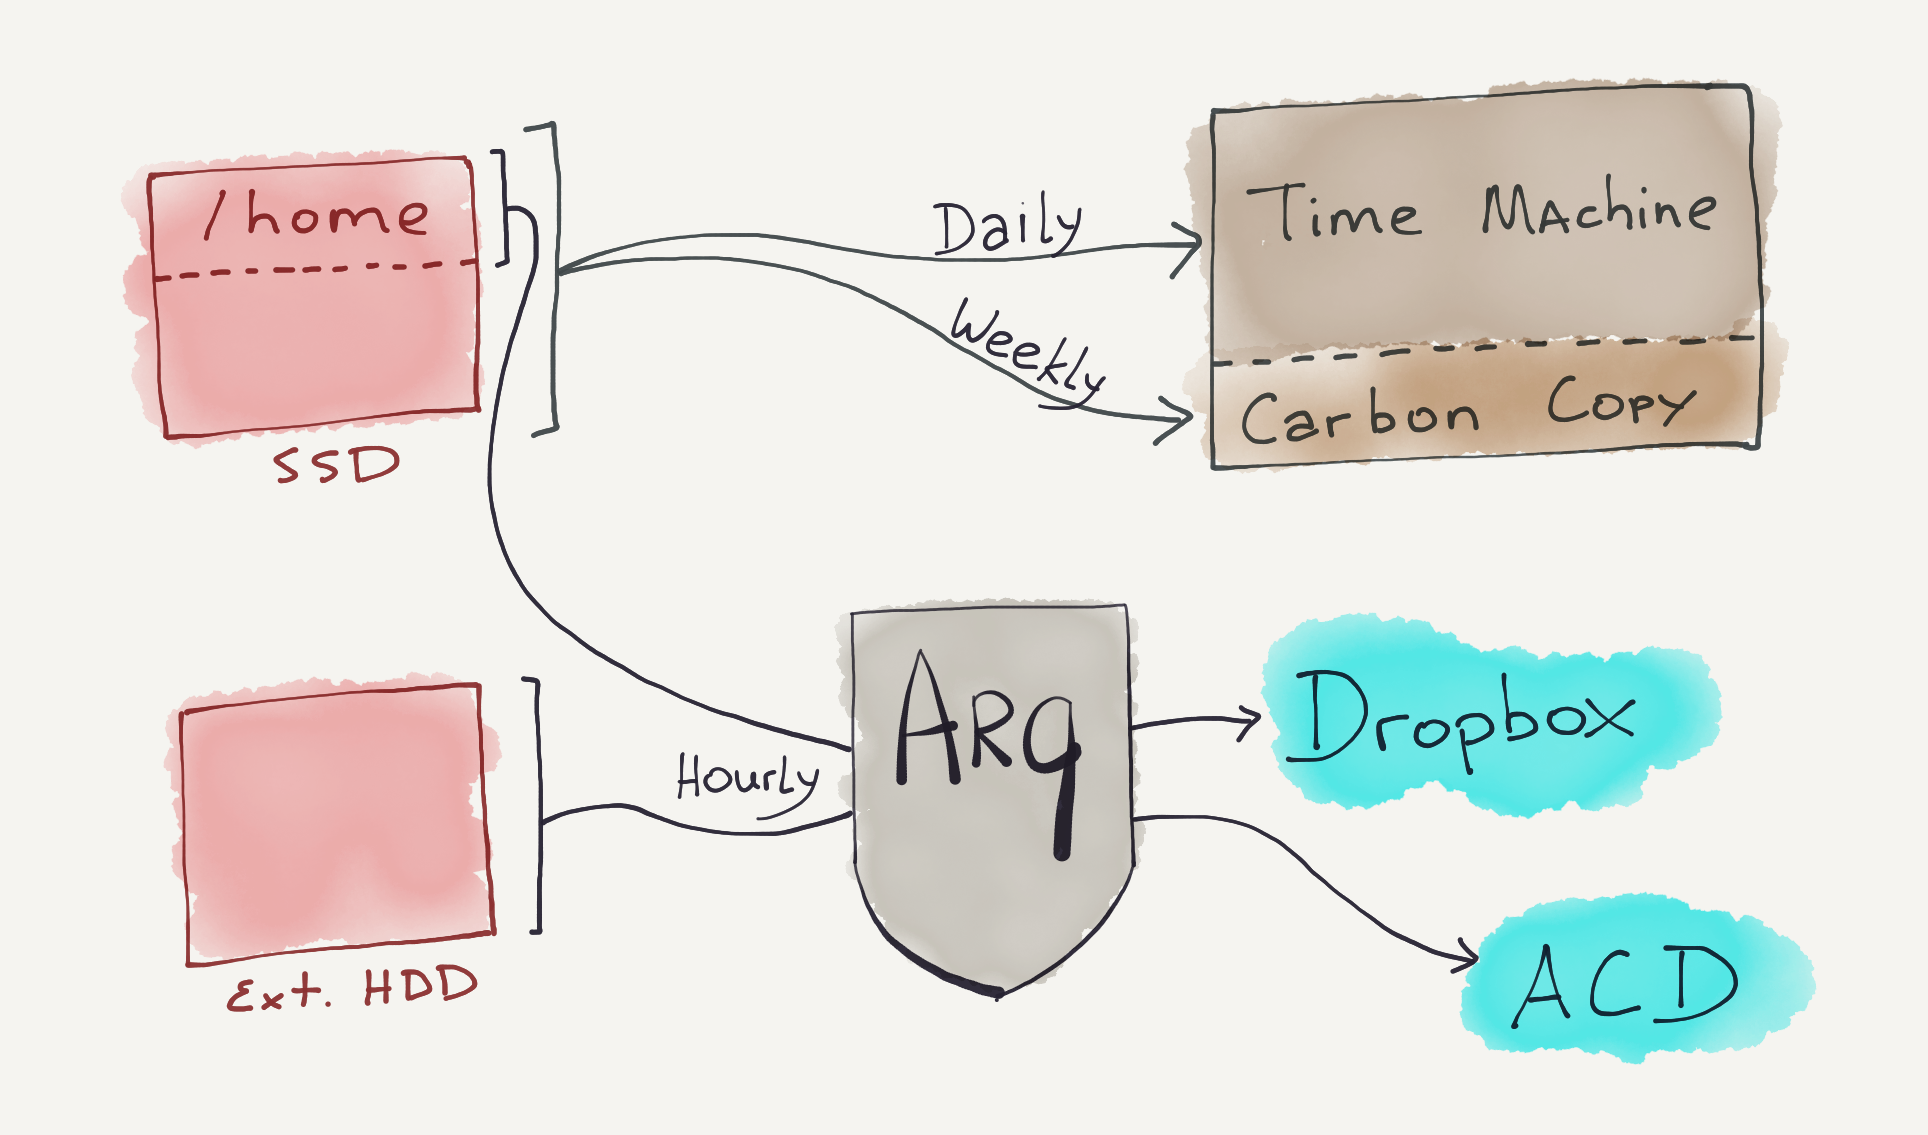 /home
SSD
Daily
Weekly
Time Machine
Carbon Copy
Ext. HDD
Hourly
Arq
Dropbox
ACD